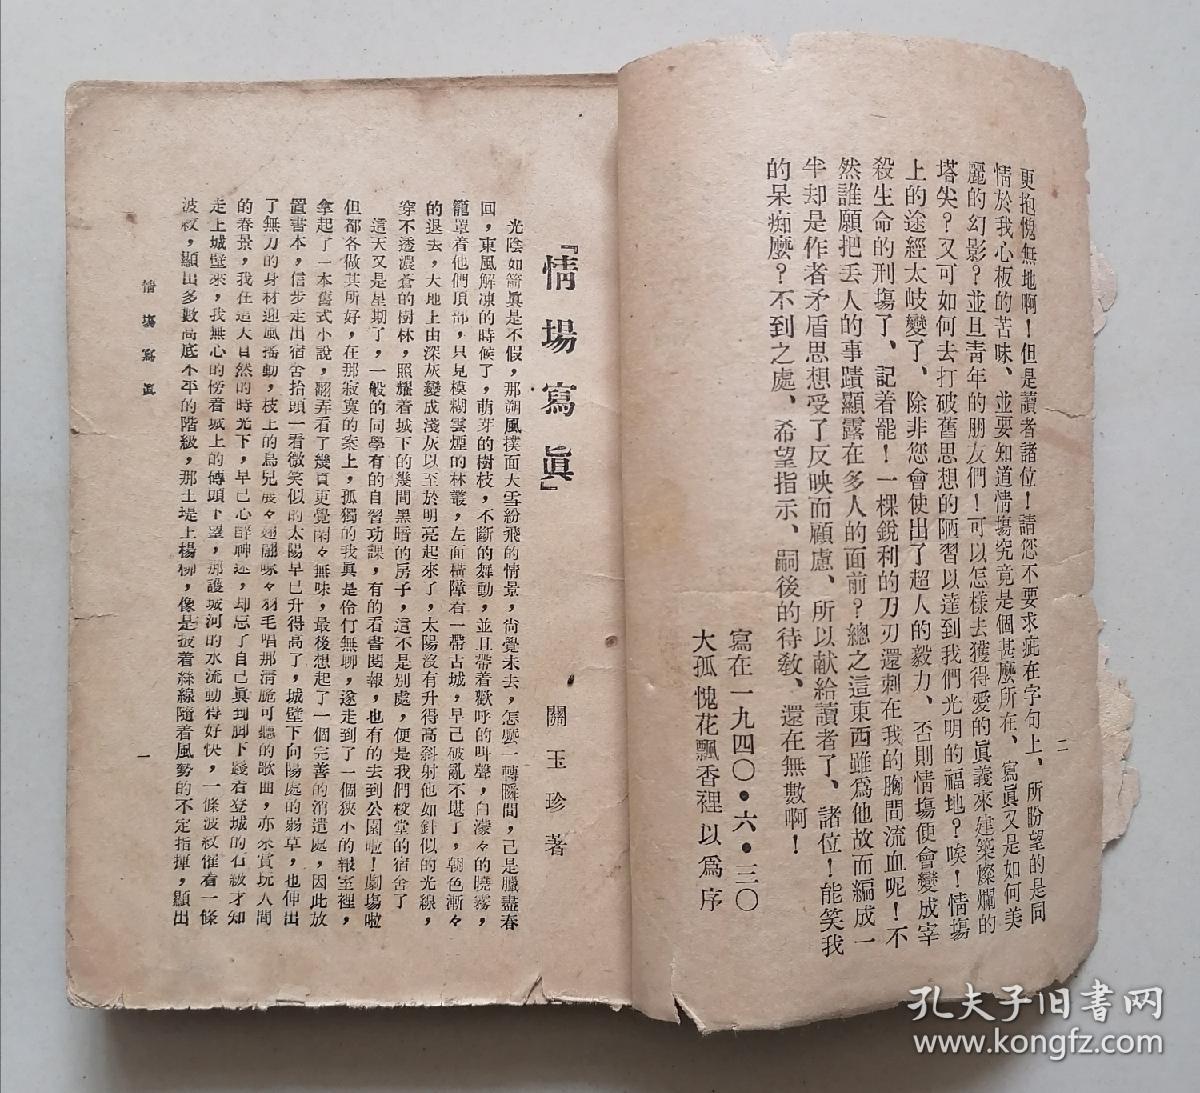 二
更抱愧無地啊！但是讀者諸位！請您不要求疵在字句上、所盼望的是同
情於我心板的苦味、並要知道情塲究竟是個甚麼所在、寫眞又是如何美
麗的幻影？並且靑年的朋友們！可以怎樣去獲得愛的眞義來建築燦爛的
塔尖？又可如何去打破舊思想的陋習以達到我們光明的福地？唉！情塲
上的途經太岐變了、除非您會使出了超人的毅力、否則情塲便會變成宰
殺生命的刑塲了、記着罷！一棵銳利的刀刃還刺在我的胸間流血呢！不
然誰願把丢人的事蹟顯露在多人的面前？總之這東西雖爲他故而編成一
半却是作者矛盾思想受了反映而顧慮、所以献給讀者了、諸位！能笑我
的呆痴麼？不到之處、希望指示、嗣後的待敎、還在無數啊！
寫在一九四〇・六・三〇
大孤愧花飄香裡以爲序
『情塲寫眞』
關玉珍著
光陰如箭眞是不假，那朔風撲面大雪紛飛的情景，尙覺未去，怎麼一轉瞬間，己是臘盡春
回，東風解凍的時候了，萌芽的樹枝，不斷的舞動，並且帶着歡呼的叫聲，白濛々的曉霧，
籠罩着他們頂部，只見模糊雲煙的林叢，左面橫障着一帶古城，早己破亂不堪了，朝色漸々
的退去，大地上由深灰變成淺灰以至於明亮起來了，太陽沒有升得高斜射他如針似的光線，
穿不透濃蒼的樹林，照耀着城下的幾間黑暗的房子，這不是別處，便是我們校堂的宿舍了
這天又是星期了，一般的同學有的自習功課，有的看書閱報，也有的去到公園啦！劇塲啦
但都各做其所好，在那寂寞的案上，孤獨的我眞是伶仃無聊，遂走到了一個狹小的報室裡，
拿起了一本舊式小說，翻弄看了幾頁更覺悶々無味，最後想起了一個完善的消遣處，因此放
置書本，信步走出宿舍抬頭一看微笑似的太陽早已升得高了，城壁下向陽處的弱草，也伸出
了無力的身材迎風搖動，枝上的鳥兒展々翅膀啄々羽毛唱那淸脆可聽的歌曲，亦來賞玩人間
的春景，我在這大自然的時光下，早已心醉神迷，却忘了自己眞到脚下踐着登城的石級才知
走上城壁來，我無心的傍着城上的磚頭下望，那護城河的水流動得好快，一條波紋催着一條
波紋，顯出多數高底不平的階級，那土堤上楊柳，像是披着絲線隨着風勢的不定指揮，顯出
情塲寫眞
一
孔夫子旧書网
www.kongfz.com